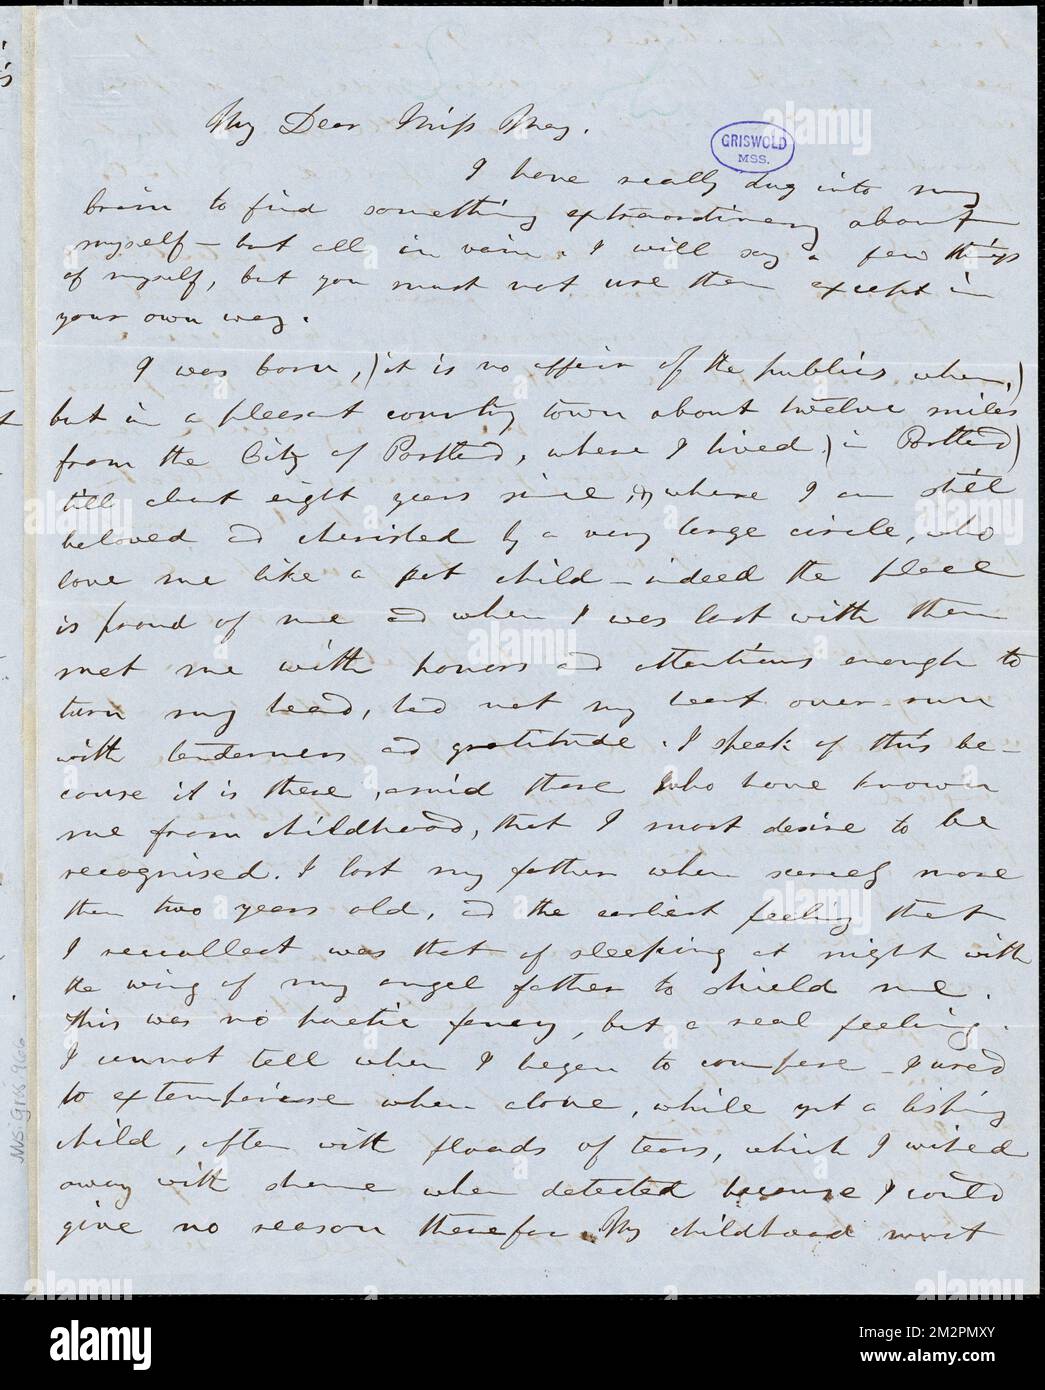 My Dear Miss May.
GRISWOLD
MSS.
I have really dug into my
brain to find something extraordinary about
myself – but all in vain. I will say a few things
of myself, but you must not use them except in
your own way.
I was born, (it is no affair of the publics when,)
but in a pleasant country town about twelve miles
from the City of Portland, where I lived (in Portland)
till about eight years since, & where I am still
beloved and cherished by a very large circle, who
love me like a pet child – indeed the place
is proud of me and when I was last with them
met me with honors and attentions enough to
turn my head, had not my heart over-run
with tenderness and gratitude. I speak of this be-
cause it is there, amid those who have known
me from childhood, that I most desire to be
recognised. I lost my father when scarcely more
than two years old, and the earliest feeling that
I recollect was that of sleeping at night with
the wing of my angel father to shield me.
This was no poetic fancy, but a real feeling.
I cannot tell when I began to compose – I used
to extemporise when alone, while yet a lisping
child, often with floods of tears, which I wiped
away with shame when detected because I could
give no reason therefor. My childhood most
Ms. Gris 966
alamy
Image ID: 2M2PMXY
www.alamy.com